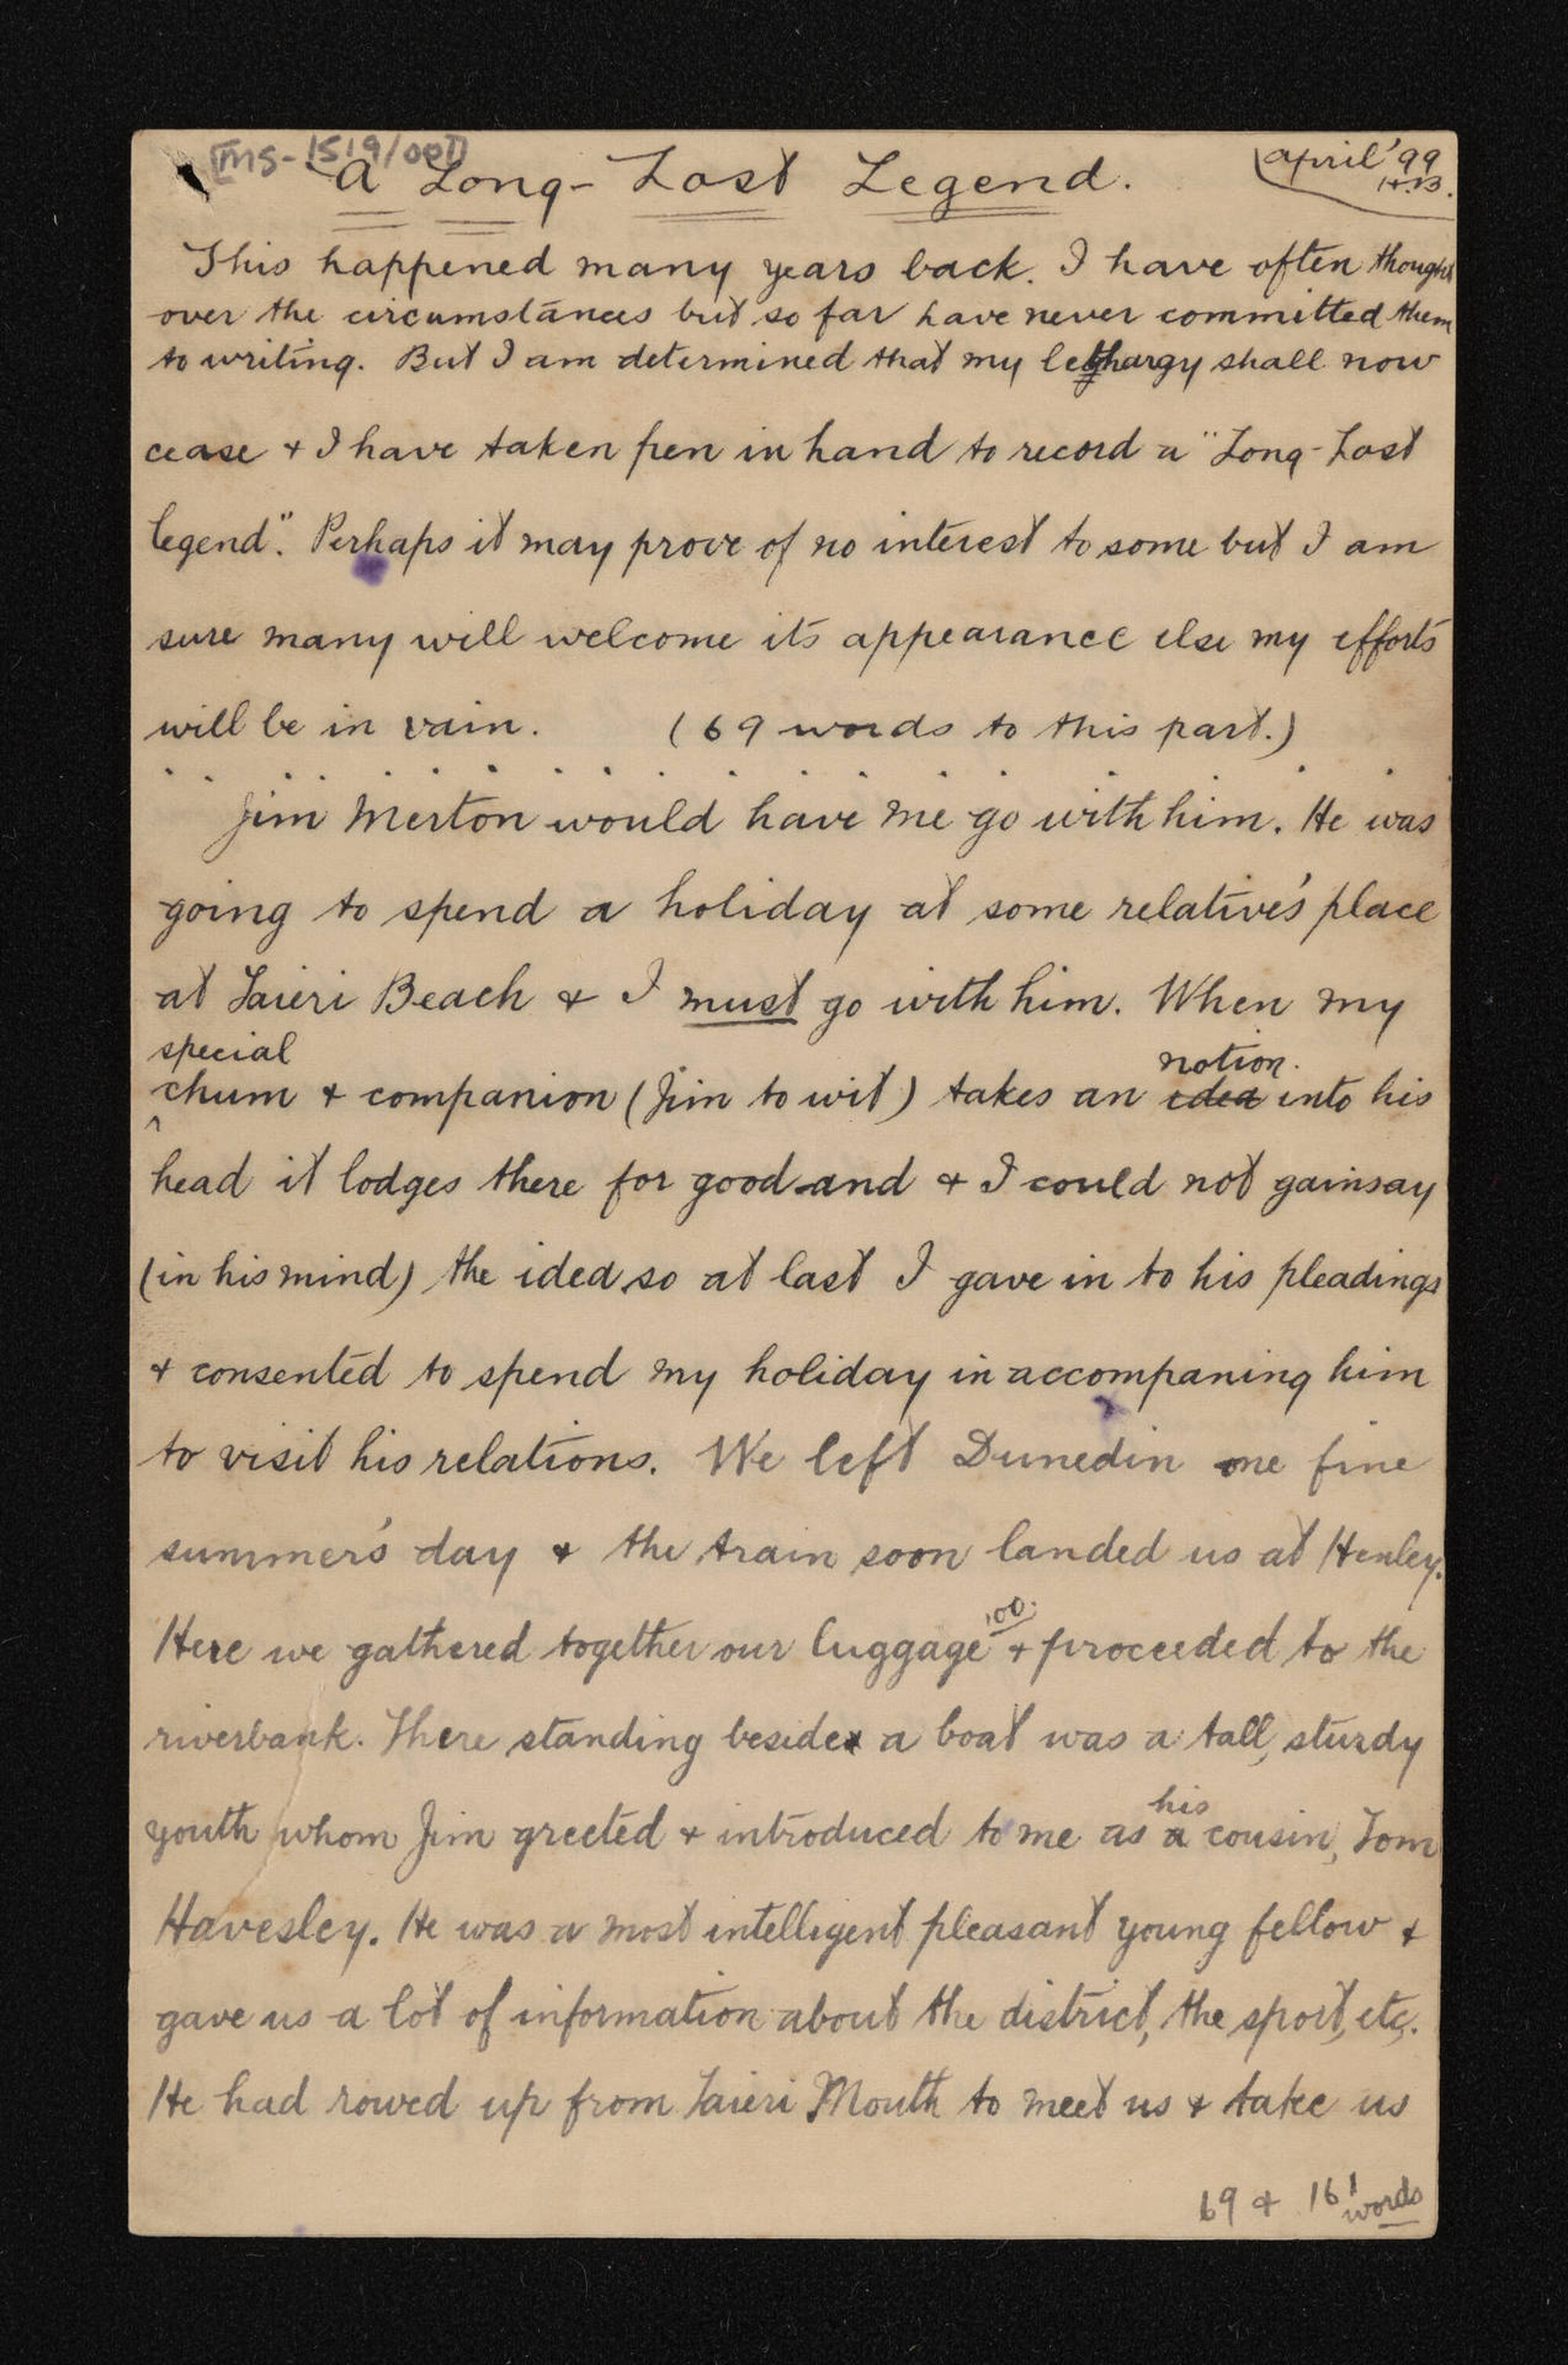 [MS-1519/001]
A Long-Lost Legend.
April '99
H.B.
This happened many years back. I have often thought
over the circumstances but so far have never committed them
to writing. But I am determined that my lethargy shall now
cease & I have taken pen in hand to record a "Long-Lost
legend". Perhaps it may prove of no interest to some but I am
sure many will welcome its appearance else my efforts
will be in vain. (69 words to this part.)
Jim Merton would have me go with him. He was
going to spend a holiday at some relative's place
at Taieri Beach & I must go with him. When my
special notion.
chum & companion (Jim to wit) takes an idea into his
head it lodges there for good and & I could not gainsay
(in his mind) the idea so at last I gave in to his pleadings
& consented to spend my holiday in accompaning him
to visit his relations. We left Dunedin one fine
summer's day & the train soon landed us at Henley.
100.
Here we gathered together our luggage & proceeded to the
riverbank. There standing beside a boat was a tall, sturdy
his
youth whom Jim greeted & introduced to me as a cousin, Tom
Havesley. He was a most intelligent pleasant young fellow &
gave us a lot of information about the district, the sport, etc.
He had rowed up from Taieri Mouth to meet us & take us
69 & 161
words